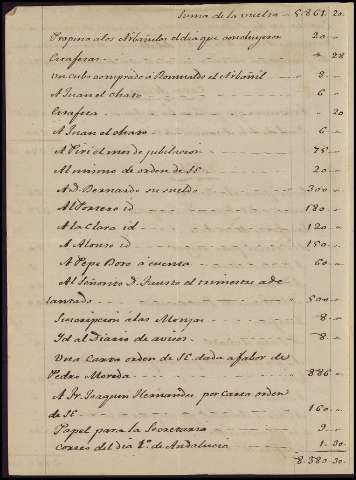 Suma de la vuelta - 5.861 20.
Propina a los Albañiles el dia que concluyeron 20 -
Carafeas - 28
Un cubo comprado a Romualdo el Albañil - 8 -
A Juan el charo - 6 -
Carafea - 20
A Juan el charo - 6 -
A Piri el mes de jubilacion - 75 -
Al mismo de orden de SE - 20 -
A D. Bernardo su sueldo - 300 -
Al Portero id - 180 -
A la Clara id - 120 -
A Alonso id - 150 -
A Pepe Boro a cuenta - 60 -
Al Señorito D. Fausto el trimestre ade
lantado - 500 -
Suscripcion a las Monjas - 8 -
Id al Diario de avisos - 8 -
Una Carta orden de SE dada a falor de
Pedro Moreda - 886 -
A Fr. Joaquin Hernandez por Carta orden
de SE - 160 -
Papel para la Secretaria - 9 -
Correo del dia 1º de Andalucia - 1. 30.
8.380 - 30.